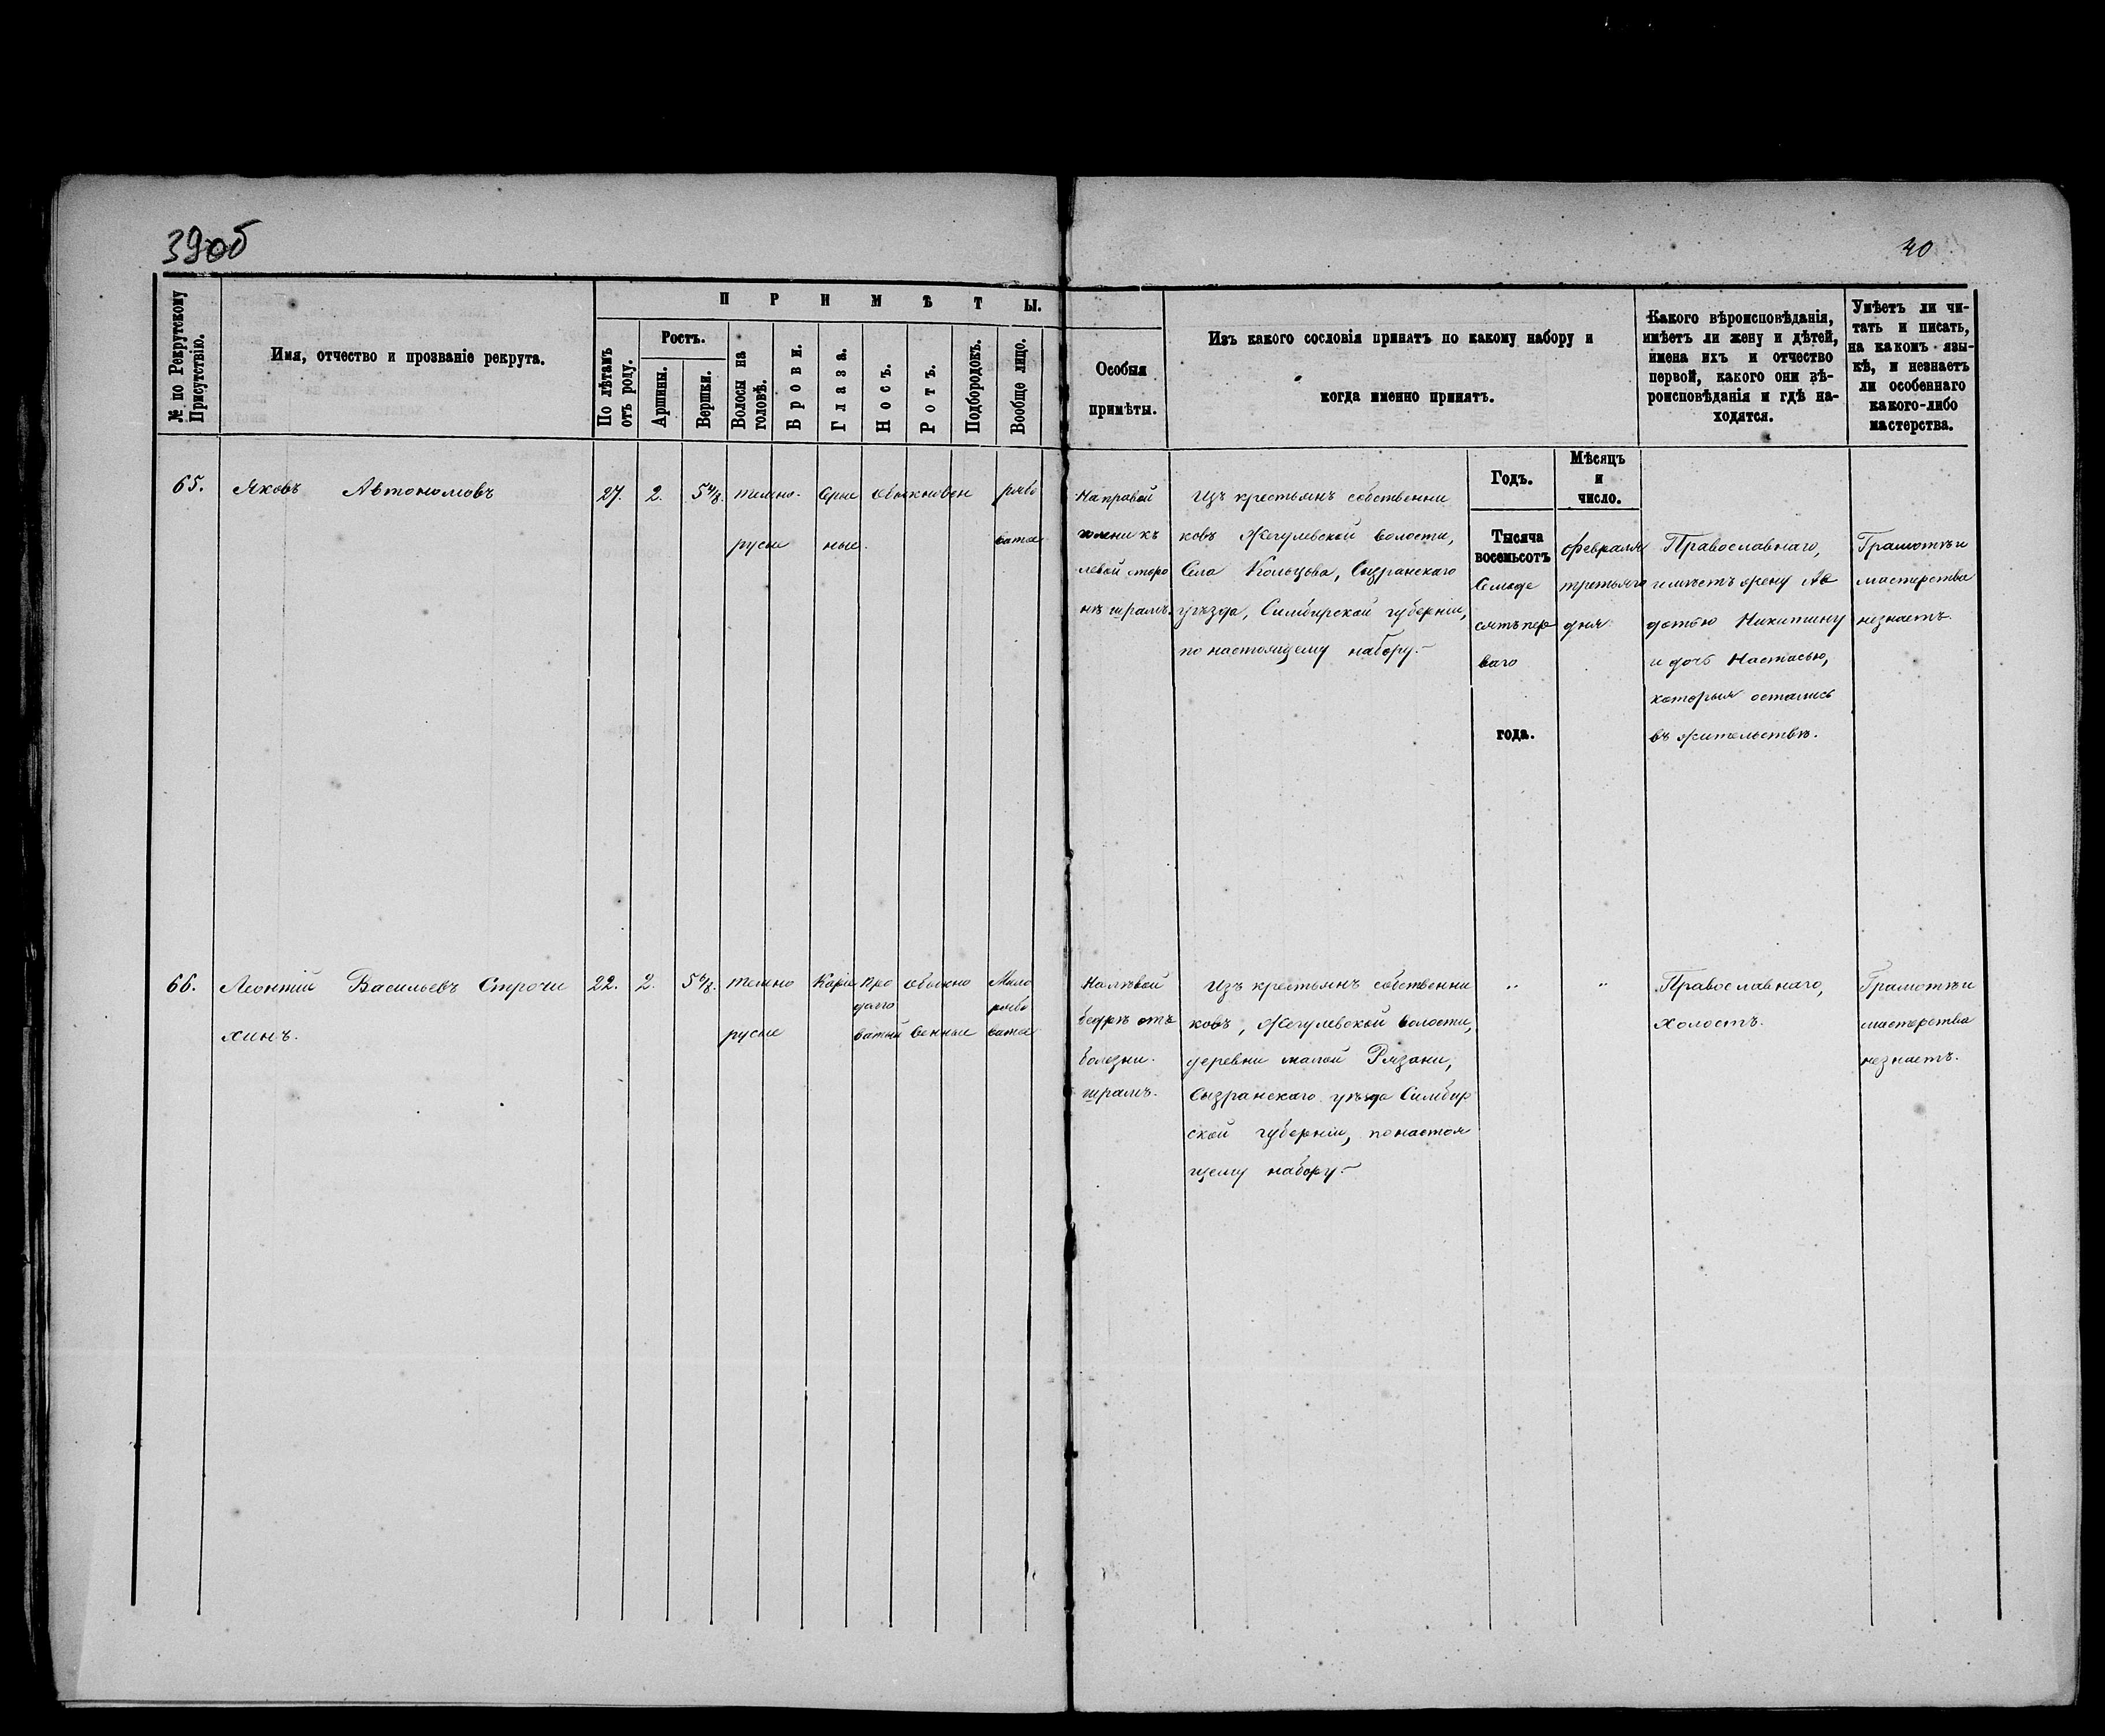 39об
40
№ по Рекрутскому Присутствію.
Имя, отчество и прозваніе рекрута.
ПРИМѢТЫ.
По лѣтамъ отъ роду.
Ростъ.
Аршины.
Вершки.
Волосы на головѣ.
Брови.
Глаза.
Носъ.
Ротъ.
Подбородокъ.
Вообще лицо.
Особыя
примѣты.
Изъ какого сословія принятъ по какому набору и
когда именно принятъ.
Какого вѣроисповѣданія,
имѣетъ ли жену и дѣтей,
имена ихъ и отчество
первой, какого они вѣ-
роисповѣданія и гдѣ на-
ходятся.
Умѣетъ ли чи-
тать и писать,
на какомъ язы-
кѣ, и незнаетъ
ли особеннаго
какого-либо
мастерства.
Годъ.
Мѣсяцъ
и
число.
65.
Яковъ Автономовъ
27.
2.
5 4/8.
темно-
русые
Сѣрые
обыкновен
ные.
рябо
ватое
На правой
голени къ
левой сторо
нѣ шрамъ.
Изъ крестьянъ собственни
ковъ Жегулевской волости,
Села Кольцова, Сызранскаго
уѣзда, Симбирской губерніи,
по настоящему набору.-
Тысяча
восемьсотъ
Семьде
сятъ пер
ваго
года.
Февраля
третьяго
дня
Православнаго,
имѣетъ жену Ав
дотью Никитину
и дочь Настасью,
которыя остались
въ жительствѣ.
Грамотѣ и
мастерства
незнаетъ.
66.
Леонтій Васильевъ Строчи
хинъ.
22.
2.
темно
русые
Каріе
про
долго
ватый
обыкно
венные
Мало
рябо
ватое
На лѣвой
бедрѣ отъ
болезни
шрамъ.
Изъ крестьянъ собственни
ковъ, Жегулевской волости,
деревни малой Рязани,
Сызранскаго уѣзда Симбир
ской губерніи, по настоя
щему набору.-
"
"
Православнаго,
холостъ.
Грамотѣ и
мастерства
незнаетъ.